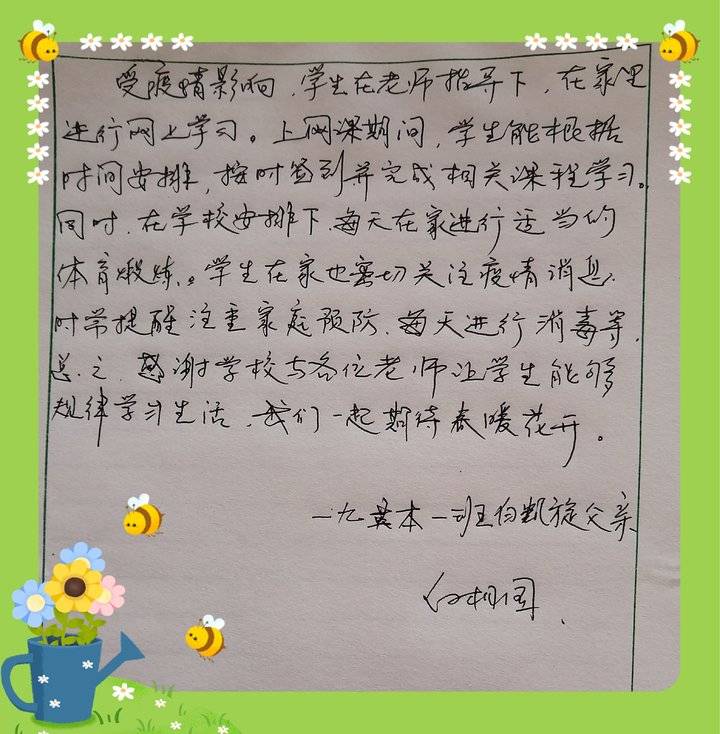 受疫情影响，学生在老师指导下，在家里
进行网上学习。上网课期间，学生能根据
时间安排，按时签到并完成相关课程学习。
同时，在学校安排下，每天在家进行适当的
体育煅炼。学生在家也密切关注疫情消息，
时常提醒注重家庭预防，每天进行消毒等，
总之，感谢学校与各位老师让学生能够
规律学习生活，我们一起期待春暖花开。
一九英本一班白凯旋父亲
白相国